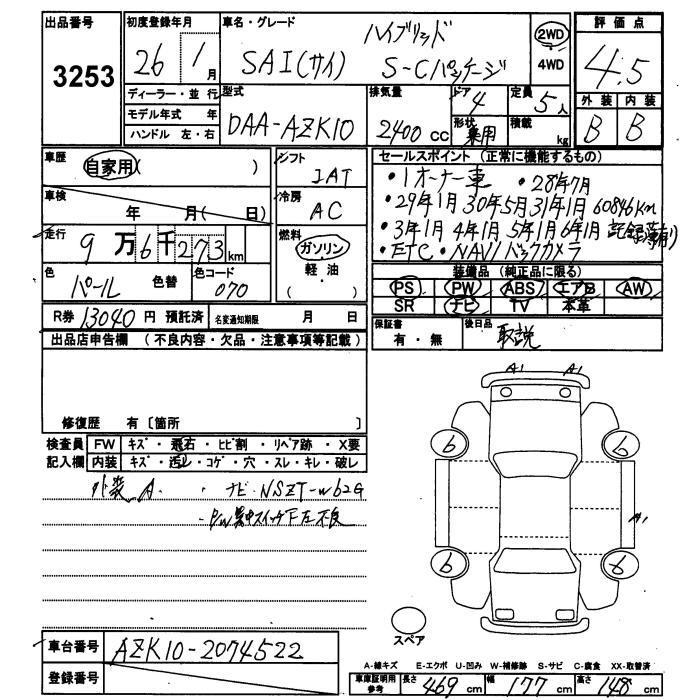 出品番号 3253
初度登録年月 26 1月
ディーラー・並行
モデル年式 年
ハンドル 左・右
車名・グレード ハイブリッド
SAI(サイ) S-Cパッケージ
2WD
4WD
評価点
4.5
外装 内装
B B
型式 DAA-AZK10
排気量 2400cc
ドア 4
形状 乗用
定員 5人
積載 kg
車歴 自家用( )
車検 年 月( 日)
走行 9万6千273km
色 パール 色替
色コード 070
シフト IAT
冷房 AC
燃料 ガソリン
軽・油
( )
セールスポイント (正常に機能するもの)
・1オーナー車 ・28年7月
・29年1月 30年5月 31年1月 60846Km
・3年1月 4年1月 5年1月 6年1月 記録簿有り
・ETC・NAVI バックカメラ
装備品 (純正品に限る)
PS PW ABS エアB AW
SR ナビ TV 本革
R券 13040円 預託済 名変通知期限 月 日
保証書 有・無
後日品 取説
出品店申告欄 (不良内容・欠品・注意事項等記載)
修復歴 有〔箇所 〕
検査員 FW キズ・飛石・ヒビ割・リペア跡・X要
記入欄 内装 キズ・汚レ・コゲ・穴・スレ・キレ・破レ
外装 A ・ナビ・NSZT-W62G
・P/W集中スイッチ下左不良
A1 A1
6 6
A1
6 6
スペア
車台番号 AZK10-2074522
登録番号
A-線キズ E-エクボ U-凹み W-補修跡 S-サビ C-腐食 XX-取替済
車庫証明用参考 長さ 469cm 幅 177cm 高さ 148cm